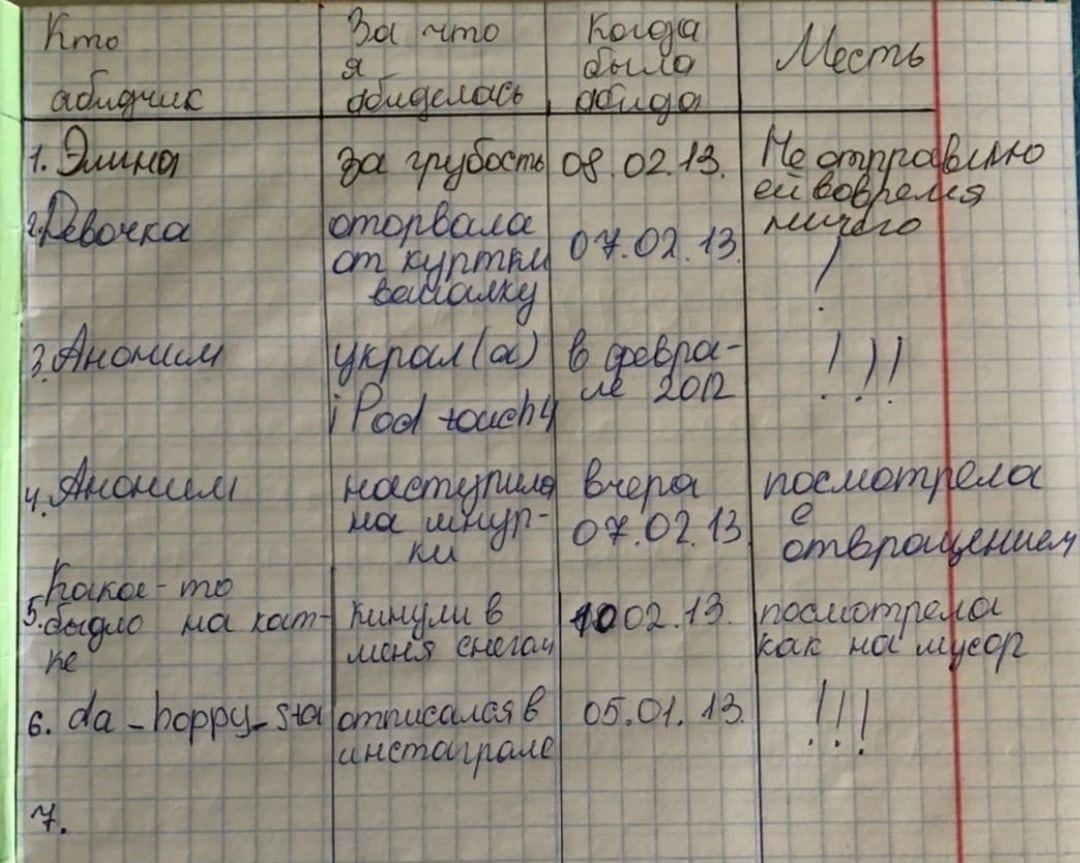 Кто За что Когда Месть
я была
абидчик абиделась абида
1. Элина за грубость 08.02.13. Не отправлю
ей вовремя
ничего
2. Девочка оторвала 07.02.13. !
от куртки
вешалку
3. Аноним украл(а) в февра- !!!
iPod touch 4 ле 2012
4. Аноним наступила вчера посмотрела
на шнур- 07.02.13 с
ки отвращением
5. Какое-то кинули в 10 02.13. посмотрела
быдло на кат- меня снегом как на мусор
ке
6. da_happy_sta отписался в 05.01.13. !!!
инстаграме
7.